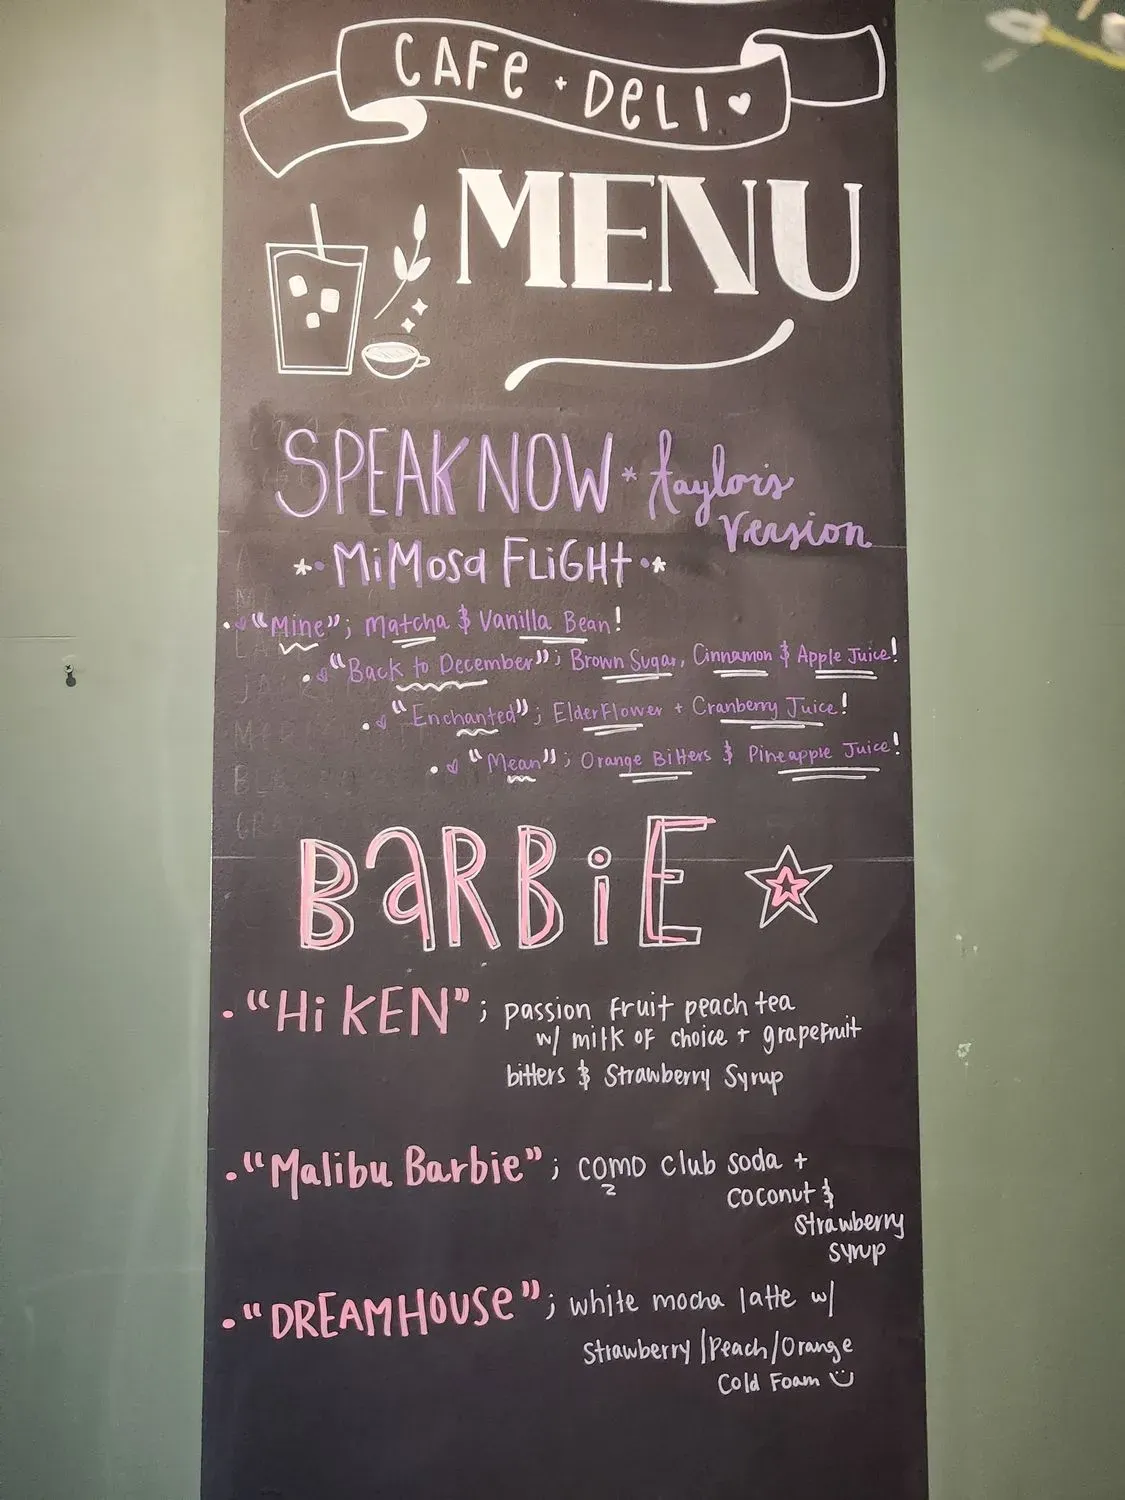 CAFe + DeLI
MENU
SPEAK NOW * taylor's
Version
* • MiMosa FLiGHt • *
• "Mine"; Matcha & Vanilla Bean!
• "Back to December"; Brown Sugar, Cinnamon & Apple Juice!
• "Enchanted"; ElderFlower + Cranberry Juice!
• "Mean"; Orange Bitters & Pineapple Juice!
BaRBiE
• "Hi KEN"; passion fruit peach tea
w/ milk of choice + grapefruit
bitters & Strawberry Syrup
• "Malibu Barbie"; COMO club soda +
coconut &
strawberry
syrup
• "DREAMHOUSe"; white mocha latte w/
Strawberry/Peach/Orange
Cold Foam